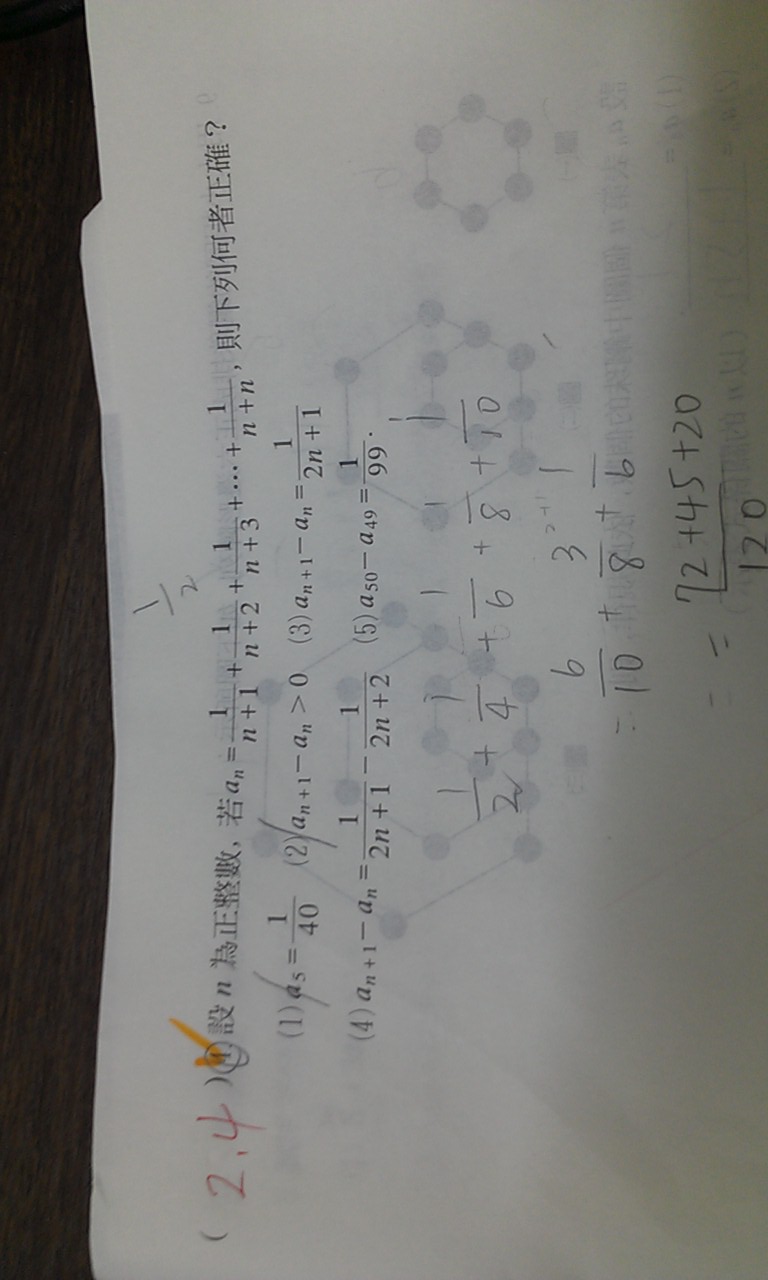 ( 2.4 )4.設 n 為正整數,若 aₙ = 1/(n+1) + 1/(n+2) + 1/(n+3) + … + 1/(n+n),則下列何者正確?
(1) a₅ = 1/40 (2) aₙ₊₁ − aₙ > 0 (3) aₙ₊₁ − aₙ = 1/(2n+1)
(4) aₙ₊₁ − aₙ = 1/(2n+1) − 1/(2n+2) (5) a₅₀ − a₄₉ = 1/99 .
1/2
1/2 + 1/4 + 1/6 + 1/8 + 1/10
= 6/10 + 3/8 + 1/6
= 72+45+20/120